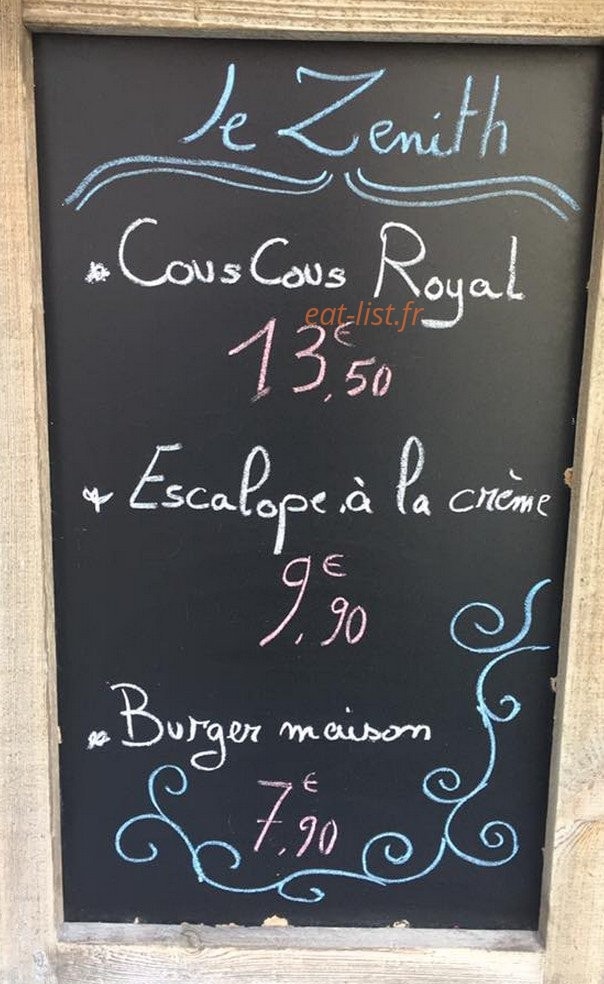 Le Zenith
* CousCous Royal
eat-list.fr
13€,50
* Escalope à la crème
9€,90
* Burger maison
7€,90